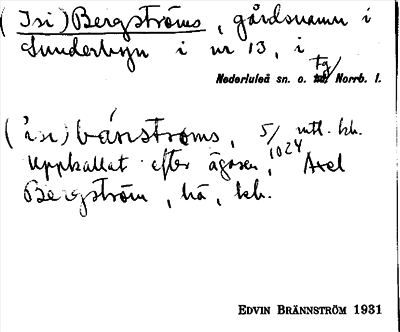 (Isi) Bergströms, gårdsnamn i
Sunderbyn i nr 13, i
Nederluleå sn. o. tg/ Norrb. l.
(ìsi) bǽnstroms, 5/ mtl. kh.
Uppkallat efter ägaren, 1024 Axel
Bergström, kh.
EDVIN BRÄNNSTRÖM 1931